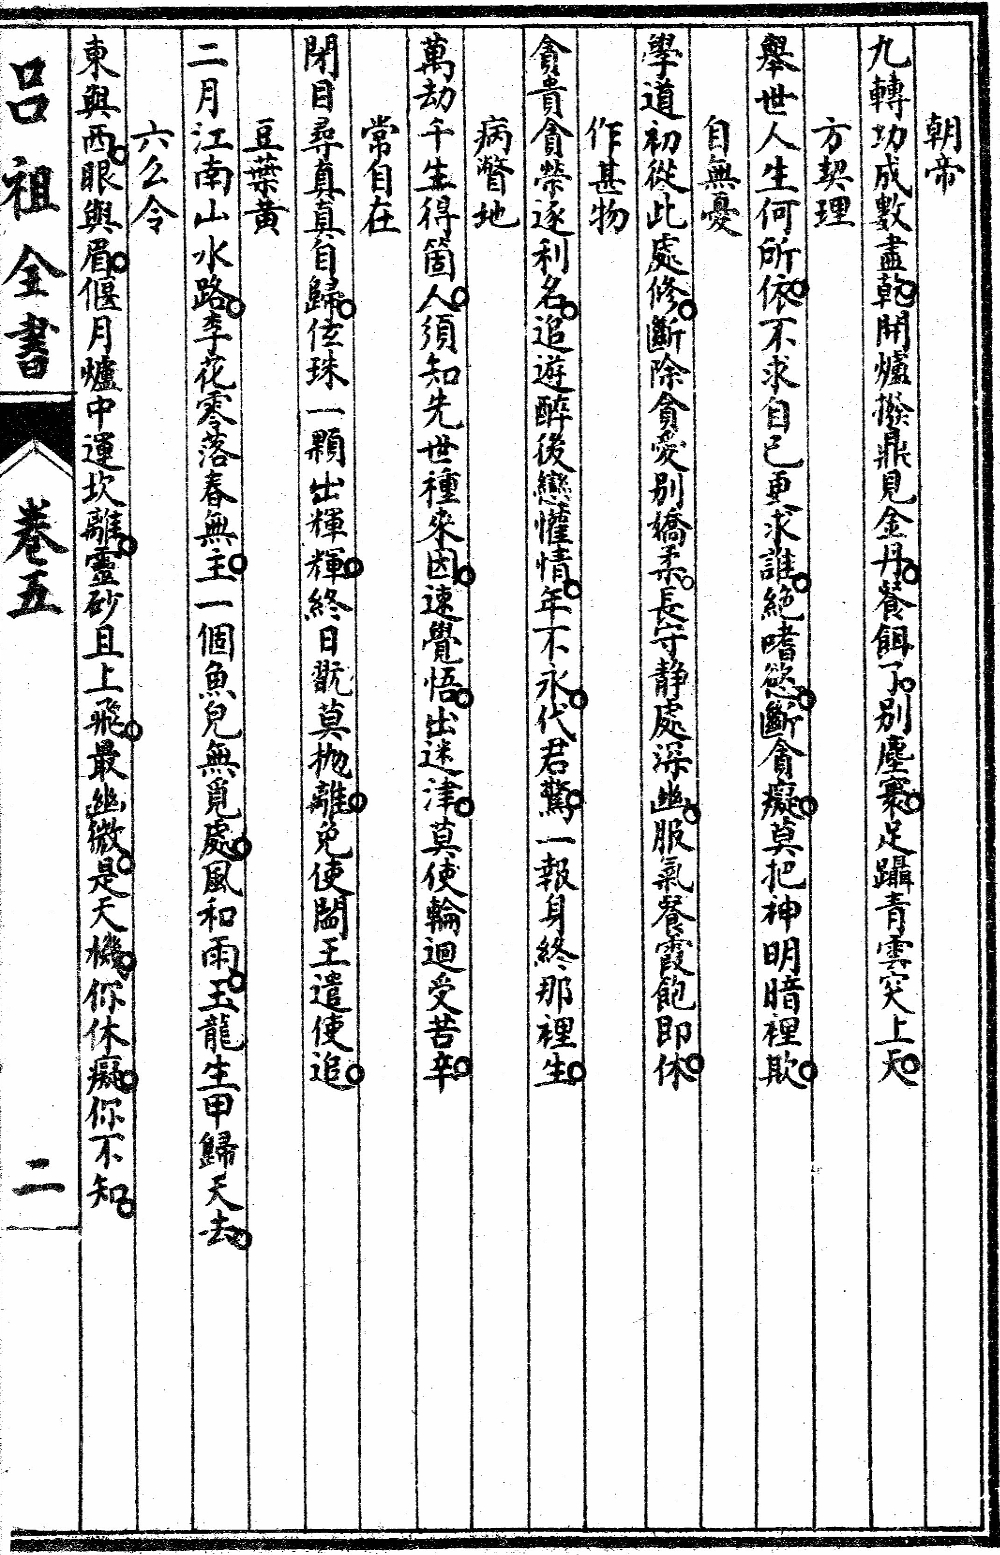 朝帝
九轉功成數盡乾開爐撥鼎見金丹餐餌了別塵寰足躡青雲突上天
方契理
舉世人生何所依不求自己更求誰絕嗜慾斷貪癡莫把神明暗裡欺
自無憂
學道初從此處修斷除貪愛別嬌柔長守静處深幽服氣餐霞飽即休
作甚物
貪貴貪榮逐利名追遊醉後戀懽情年不永代君驚一報身終那裡生
病瞥地
萬劫千生得箇人須知先世種來因速覺悟出迷津莫使輪迴受苦辛
常自在
閉目尋真真自歸玄珠一顆出輝輝終日翫莫抛離免使閻王遣使追
豆葉黄
二月江南山水路李花零落春無主一個魚兒無覓處風和雨玉龍生甲歸天去
六么令
東與西眼與眉偃月爐中運坎離靈砂且上飛最幽微是天機你休癡你不知
呂祖全書
卷五
二